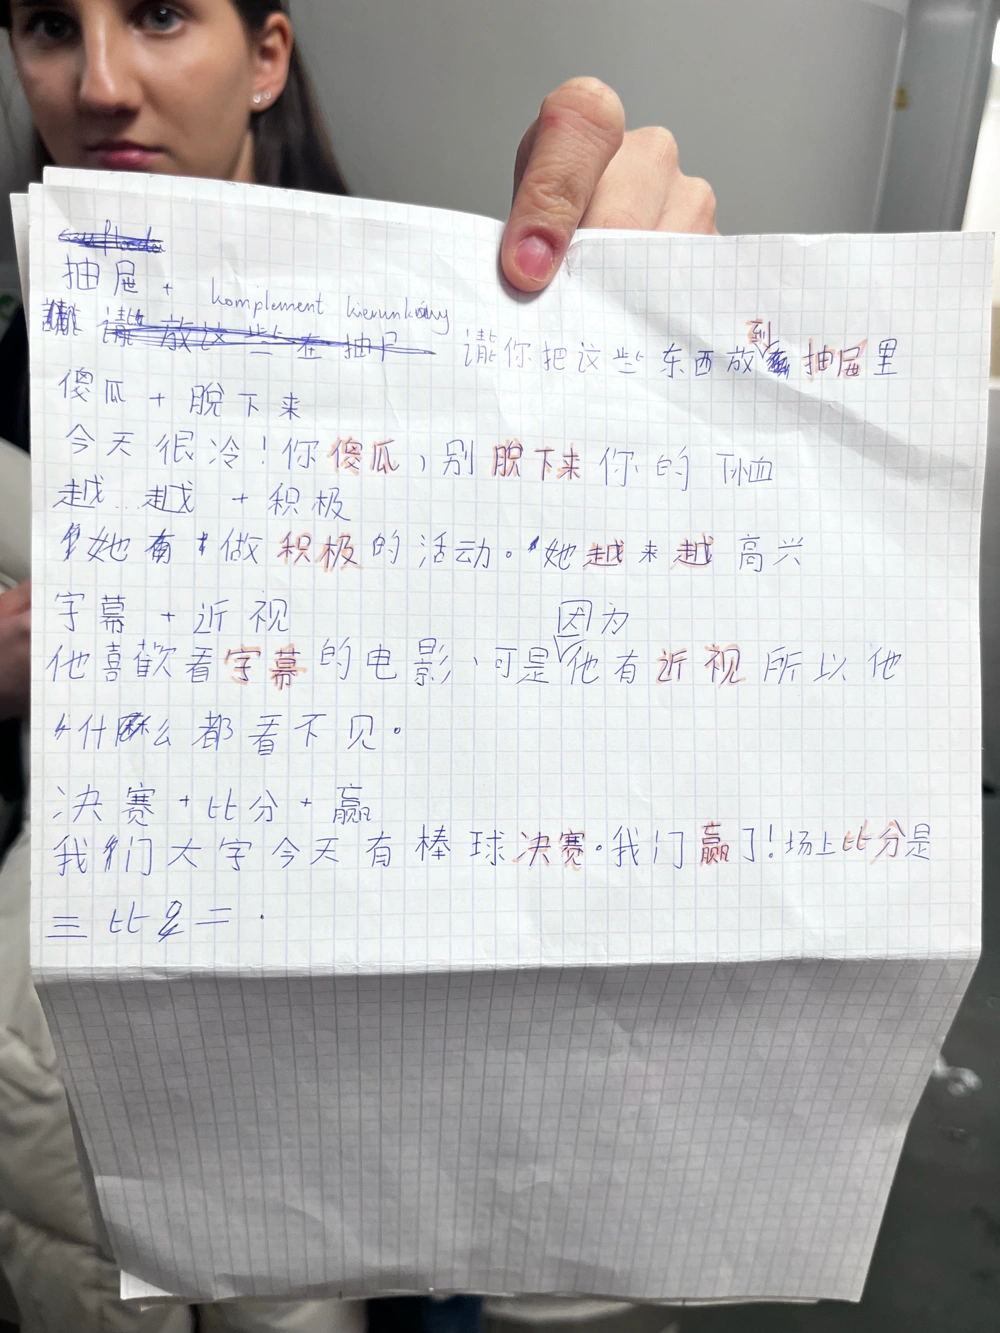 抽屉 +
komplement kierunkowy
请放这些在抽尸
请你把这些东西放到抽屉里
傻瓜 + 脱下来
今天很冷!你傻瓜,别脱下来你的T恤
越…越 + 积极
她有做积极的活动。她越来越高兴
字幕 + 近视
他喜欢看字幕的电影、可是因为他有近视所以他
什么都看不见。
决赛 + 比分 + 赢
我们大字今天有棒球决赛。我门赢了!场上比分是
三比二.